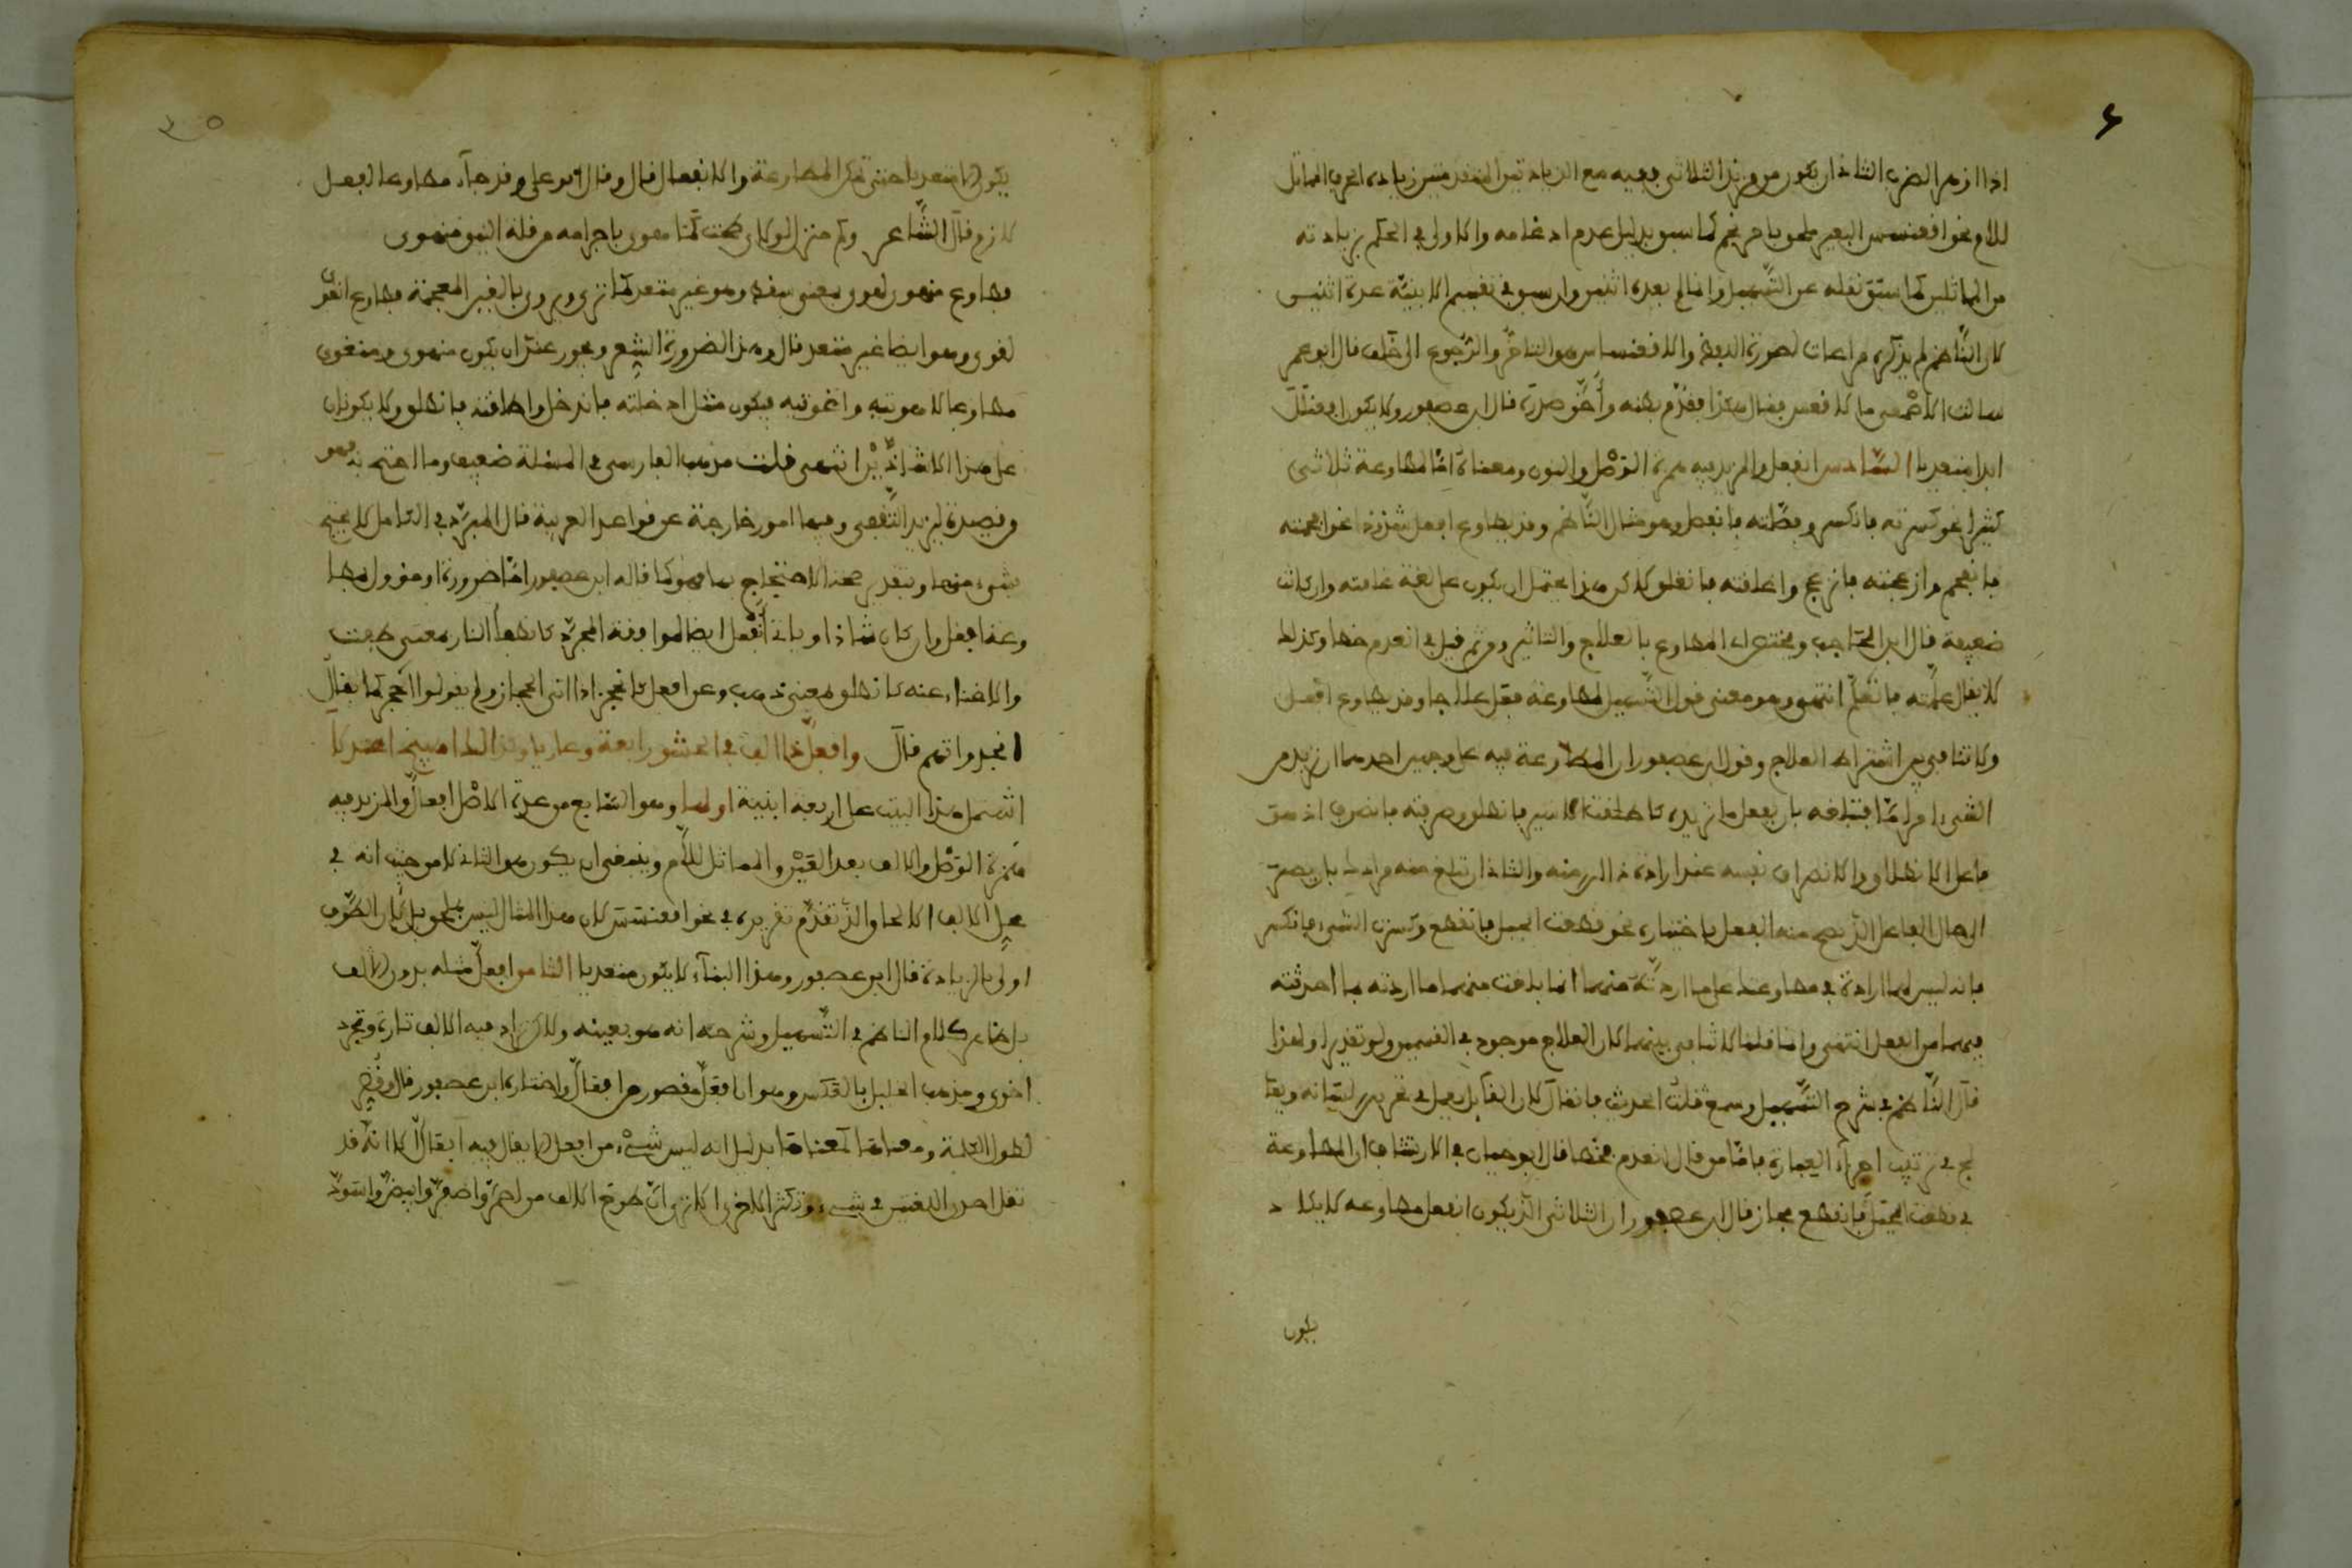 اذا ازهر الضرب الثاني ان يكون من مزيد الثلاثي ففيه مع الزيادتين المتقدمتين زيادة اخرى
للام نحو اقعنسس البعير ملحق باحرنجم كما سبق بدليل عدم ادغامه والاولى في الحكم بزيادته
من المماثلين كما سبق نقله عن التسهيل وانما لم يعده اثنين وان سبق في تقسيم الابنية عده اثنين
لان الناظم لم يذكره مراعات لصورة اللفظ والاقعنساس هو التاخر والرجوع الى خلف قال ابو عمر
سالت الاصمعي ما الاقعس فقال هكذا فقدم بطنه واخر صدره قال ابن عصفور ولا يكون افعنلل
ابدا متعديا السادس انفعل والمزيد فيه همزة الوصل والنون ومعناه اما لمطاوعة ثلاثي
كثيرا نحو كسرته فانكسر وفصلته فانفصل وهو مثال الناظم وقد يطاوع افعل شذوذا نحو افحمته
فانفحم وازعجته فانزعج واغلقته فانغلق لاكن هذا يحتمل ان يكون على لغة غلقته وان كانت
ضعيفة قال ابن الحاجب ويختص المطاوع بالعلاج والتاثير ومن ثم قيل في انعدم خطا وكذلك
لا يقال علمته فانعلم انتهى وهو معنى قول التسهيل لمطاوعة فعل علاجا وقد يطاوع افعل
ولا تنافي بين اشتراط العلاج وقول ابن عصفور ان المطاوعة فيه على وجهين احدهما ان تريد من
الشيء امرا ما فتبلغه بان يفعل ما تريده كاطلقت الاسير فانطلق وصرفته فانصرف اذ هو
فاعل الانطلاق والانصراف بنفسه عند ارادة ذلك منه والثاني ان تبلغ منه مرادك بان يصير
الى حال الفاعل الذي يصح منه الفعل باختياره نحو قطعت الحبل فانقطع وكسرت الشيء فانكسر
فانه ليس لهما ارادة في مطاوعتك على ما اردته منهما انما بلغت منهما ما اردته بما احدثته
فيهما من الفعل انتهى وانما قلنا لا تنافي بينهما لان العلاج موجود في القسمين ولو تقديرا ولهذا
قال الناظم في شرح التسهيل وسمع قلت الحديث فانقال لان القايل يعمل في تحريك لسانه
في ترتيب اجزاء العبارة فاما من قال انعدم فخطا قال ابو حيان في الارتشاف ان المطاوعة
في قطعت الحبل فانقطع مجاز قال ابن عصفور ان الثلاثي الذي يكون انفعل مطاوعه لا بد
يكون
يكون الا متعديا حتى تمكن المطاوعة والانفعال قال وقال ابو علي وقد جاء مطاوعا لفعل
لازم قال الشاعر وكم منزل لولاي طحت كما هوى باجرامه من قلة النيق منهوى
مطاوع منهوى لهوى بمعنى سقط وهو غير متعد كما ترى ويروى بالغين المعجمة مطاوع
لغوى وهو ايضا غير متعد قال وهذا لضرورة الشعر ويجوز عندي ان يكون منهوى ومنغوى
مطاوعا لاهويته واغويته فيكون مثل ادخلته فاندخل واطلقته فانطلق ولا يكونان
على هذا الا شاذين انتهى قلت مذهب الفارسي في المسئلة ضعيف وما احتج به فهو
من قصيدة ليزيد الثقفي وفيها امور خارجة عن قواعد العربية قال المبرد في الكامل لا يحتج
بشيء منها وبتقدير صحة الاحتجاج بها فهو كما قاله ابن عصفور اما ضرورة او
افعل وان كان شاذا وياتي انفعل ايضا لموافقة المجرد كانطفأت النار بمعنى طفئت
والاغناء عنه كانطلق بمعنى ذهب وعن افعل كانحجز اذا اتى الحجاز ولم يقولوا احجز كما يقال
انجد واتهم قال
اشتمل هذا البيت على اربعة ابنية اولها وهو السابع من عدة الاصل افعال والمزيد فيه
همزة الوصل والالف بعد العين والمماثل للام وينبغي ان يكون هو الثاني لا من حيث انه في
محل الالف الالحاق الذي تقدم تقريره في نحو اقعنسس لان هذا المثال ليس بملحق بل لان الطرف
اولى بالزيادة قال ابن عصفور وهذا البناء لا يكون متعديا الثامن افعل مثله بدون الالف
بل ظاهر كلام الناظم في التسهيل وشرحه انه هو بعينه ولاكن يزاد فيه الالف تارة وتحذف
اخرى ومذهب الخليل بالعكس وهو ان افعل مقصور من افعال واختاره ابن عصفور قال وقصر
لطول الكلمة ومعناها كمعناها بدليل انه ليس شيء من افعل الا يقال فيه افعال الا انه قد
تقل احدى اللغتين في شيء وتكثر الاخرى الا ترى ان طرح الالف من احمر واصفر وابيض واسود